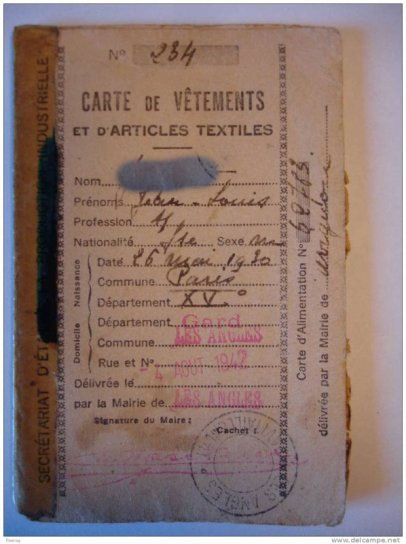 Nº 234
CARTE DE VÊTEMENTS
ET D'ARTICLES TEXTILES
Nom
Prénoms Jean-Louis
Profession
Nationalité Sexe
Naissance
Date 26 1930
Commune Paris
Département XVº
Domicile
Département Gard
Commune LES ANGLES
Rue et Nº
Délivrée le - 4 AOUT 1942
par la Mairie de LES ANGLES
Signature du Maire : Cachet :
SECRÉTARIAT D'ÉT INDUSTRIELLE
Carte d'Alimentation Nº
délivrée par la Mairie de
delcampe.net